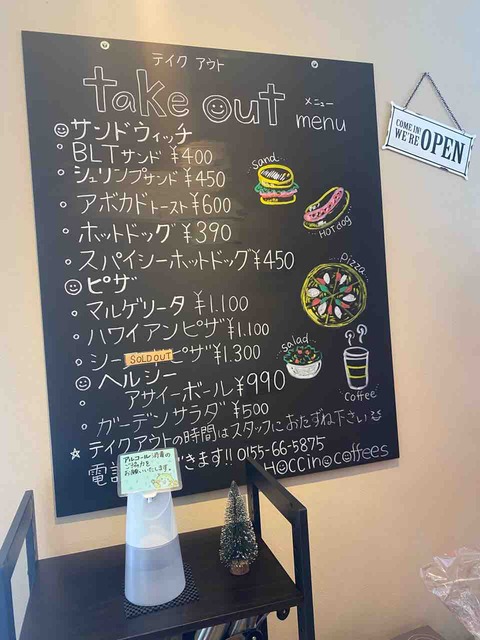 テイク アウト
take out
メニュー
menu
COME IN!
WE'RE OPEN
サンドウィッチ
BLTサンド ¥400
シュリンプサンド ¥450
アボカドトースト ¥600
ホットドッグ ¥390
スパイシーホットドッグ ¥450
sand
HOTdog
ピザ
マルゲリータ ¥1.100
ハワイアンピザ ¥1.100
シー SOLD OUT ピザ ¥1.300
pizza
ヘルシー
アサイーボール ¥990
ガーデンサラダ ¥500
salad
coffee
☆テイクアウトの時間はスタッフにおたずね下さい
電 できます!! 0155-66-5875
Hoccinocoffees
アルコール消毒の
ご協力を
お願いいたします。